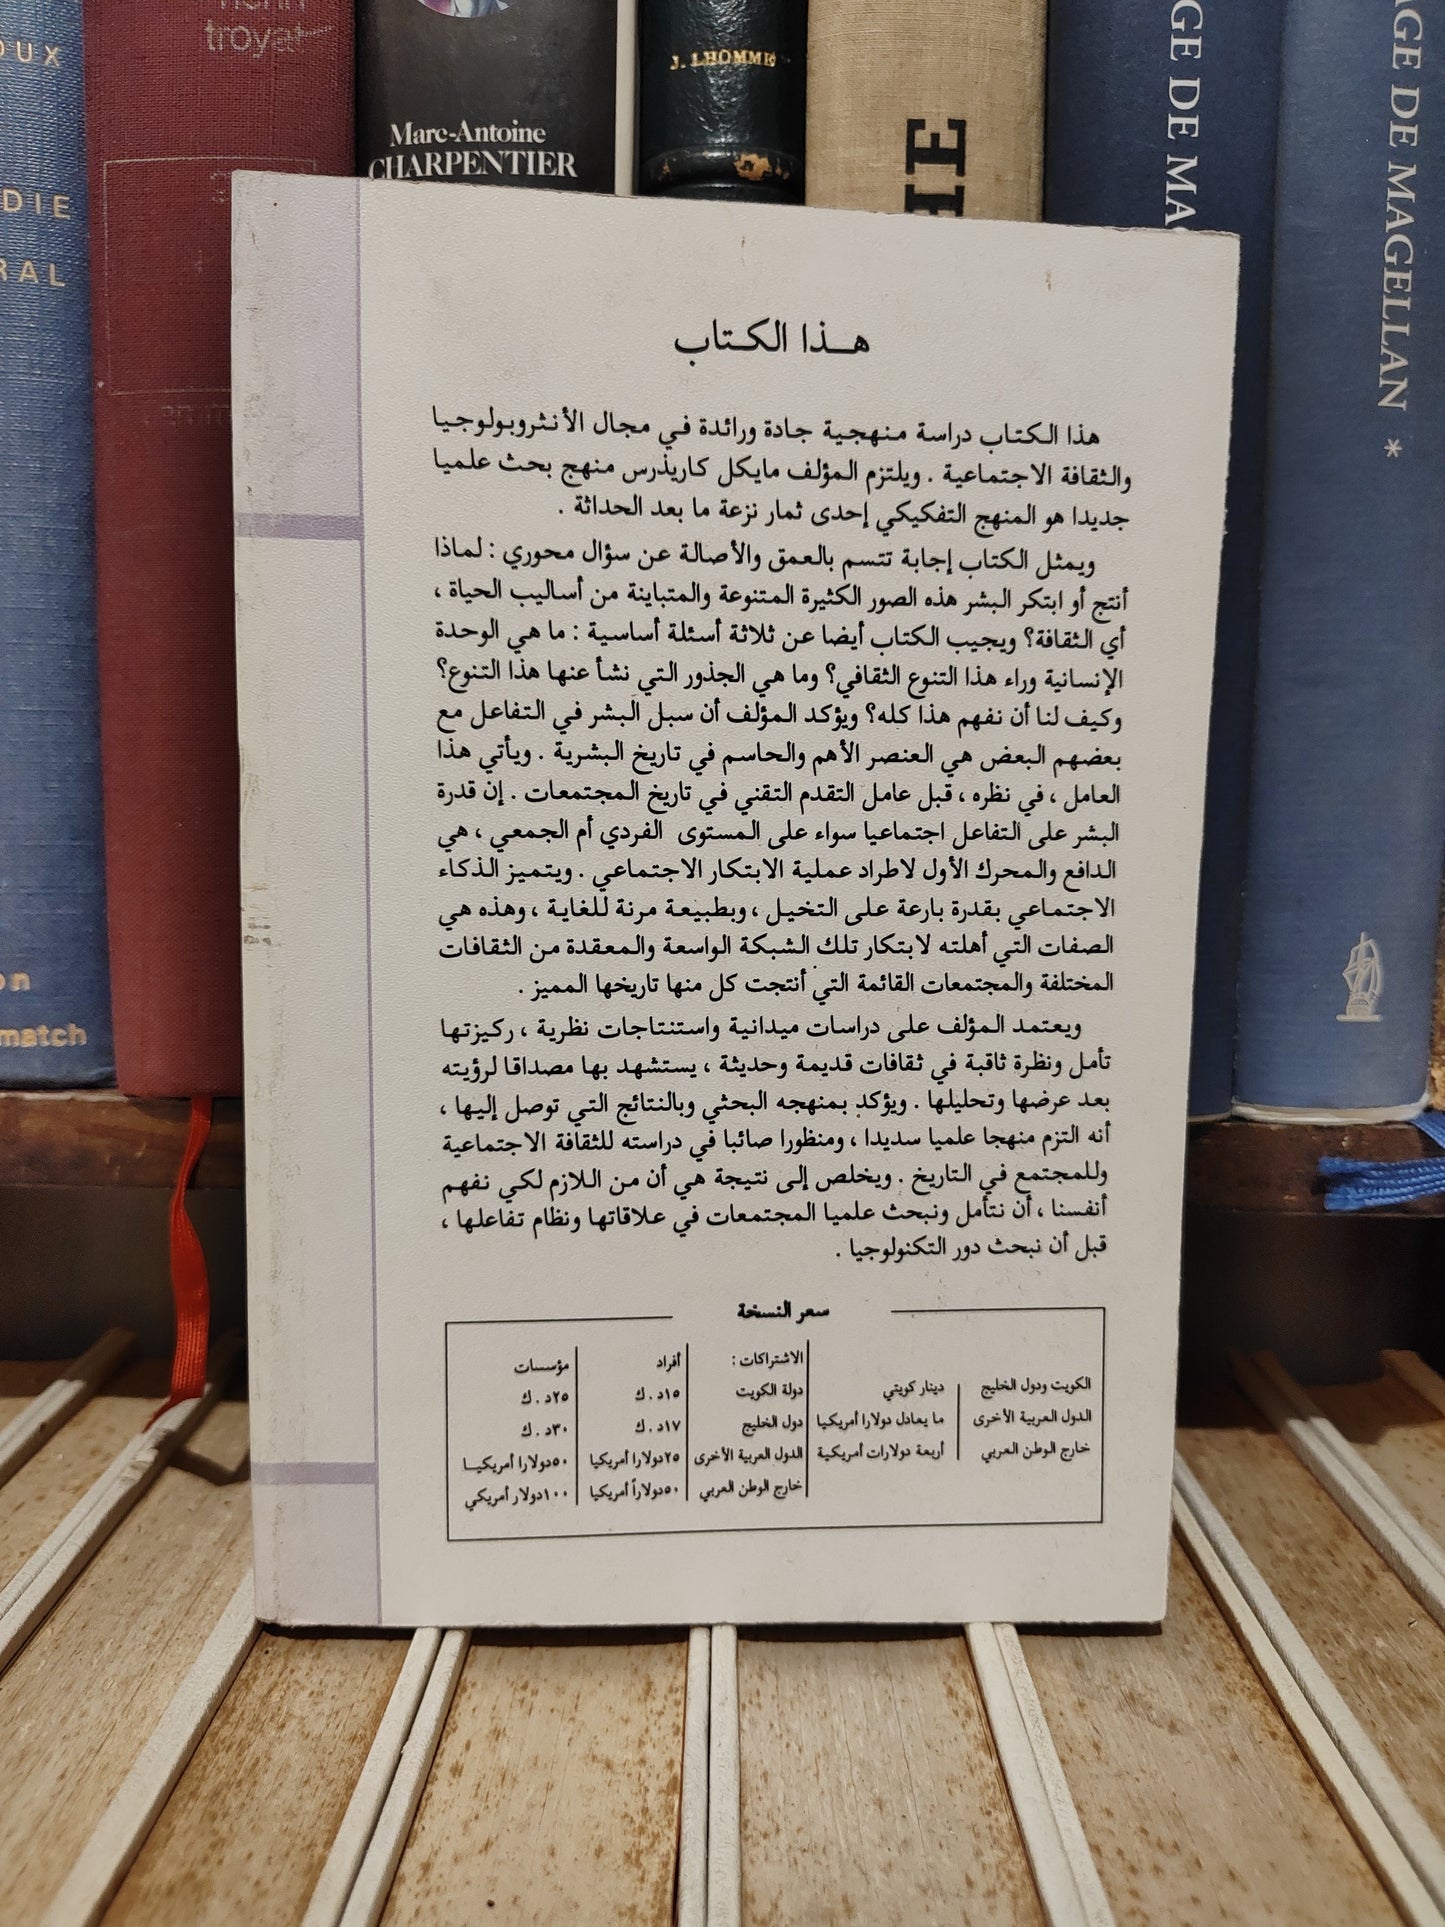 OUX
DIE
RAL
on
match
henri
troyat
Marc-Antoine
CHARPENTIER
J. LHOMME
HE
AGE DE MA
AGE DE MAGELLAN *
هـذا الكـتاب
هذا الكتاب دراسة منهجية جادة ورائدة في مجال الأنثروبولوجيا
والثقافة الاجتماعية . ويلتزم المؤلف مايكل كاريذرس منهج بحث علميا
جديدا هو المنهج التفكيكي إحدى ثمار نزعة ما بعد الحداثة .
ويمثل الكتاب إجابة تتسم بالعمق والأصالة عن سؤال محوري : لماذا
أنتج أو ابتكر البشر هذه الصور الكثيرة المتنوعة والمتباينة من أساليب الحياة ،
أي الثقافة؟ ويجيب الكتاب أيضا عن ثلاثة أسئلة أساسية : ما هي الوحدة
الإنسانية وراء هذا التنوع الثقافي؟ وما هي الجذور التي نشأ عنها هذا التنوع؟
وكيف لنا أن نفهم هذا كله؟ ويؤكد المؤلف أن سبل البشر في التفاعل مع
بعضهم البعض هي العنصر الأهم والحاسم في تاريخ البشرية . ويأتي هذا
العامل ، في نظره ، قبل عامل التقدم التقني في تاريخ المجتمعات . إن قدرة
البشر على التفاعل اجتماعيا سواء على المستوى الفردي أم الجمعي ، هي
الدافع والمحرك الأول لاطراد عملية الابتكار الاجتماعي . ويتميز الذكاء
الاجتماعي بقدرة بارعة على التخيل ، وبطبيعة مرنة للغاية ، وهذه هي
الصفات التي أهلته لابتكار تلك الشبكة الواسعة والمعقدة من الثقافات
المختلفة والمجتمعات القائمة التي أنتجت كل منها تاريخها المميز .
ويعتمد المؤلف على دراسات ميدانية واستنتاجات نظرية ، ركيزتها
تأمل ونظرة ثاقبة في ثقافات قديمة وحديثة ، يستشهد بها مصداقا لرؤيته
بعد عرضها وتحليلها . ويؤكد بمنهجه البحثي وبالنتائج التي توصل إليها ،
أنه التزم منهجا علميا سديدا ، ومنظورا صائبا في دراسته للثقافة الاجتماعية
وللمجتمع في التاريخ . ويخلص إلى نتيجة هي أن من اللازم لكي نفهم
أنفسنا ، أن نتأمل ونبحث علميا المجتمعات في علاقاتها ونظام تفاعلها ،
قبل أن نبحث دور التكنولوجيا .
سعر النسخة
الاشتراكات : أفراد مؤسسات
الكويت ودول الخليج دينار كويتي دولة الكويت ١٥د . ك ٢٥د . ك
الدول العربية الأخرى ما يعادل دولارا أمريكيا دول الخليج ١٧د . ك ٣٠د . ك
خارج الوطن العربي أربعة دولارات أمريكية الدول العربية الأخرى ٢٥دولارا أمريكيا ٥٠دولارا أمريكيـا
خارج الوطن العربي ٥٠دولاراً أمريكيا ١٠٠دولار أمريكي